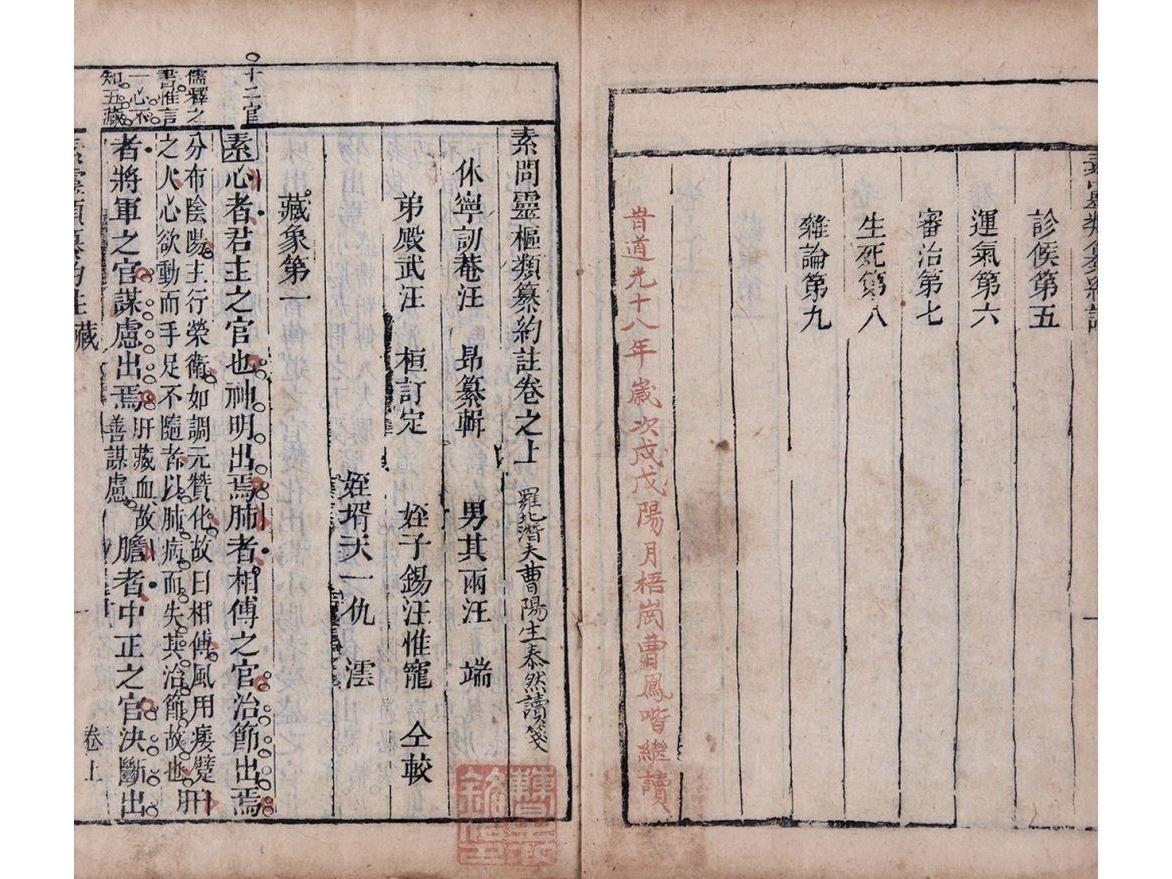 素靈類纂約註
診候第五
運氣第六
審治第七
生死第八
雜論第九
昔道光十八年歲次戊戌陽月梧崗曹鳳喈繼讀
素問靈樞類纂約註卷之上 羅北潛夫曹陽生泰然讀箋
休寧訒菴汪 昂纂輯 男其兩汪 端
弟殿武汪 桓訂定 姪子錫汪惟寵 仝較
姪壻天一仇 澐
藏象第一
十二官
素心者君主之官也神明出焉肺者相傅之官治節出焉
儒釋之
書惟言
一心不
知五藏
分布陰陽主行榮衛如調元贊化故曰相傅風用痿躄
之人心欲動而手足不隨者以肺病而失其治節故也 肝
者將軍之官謀慮出焉 肝藏血故善謀慮 膽者中正之官決斷出
素靈類纂約註 藏 卷上 一